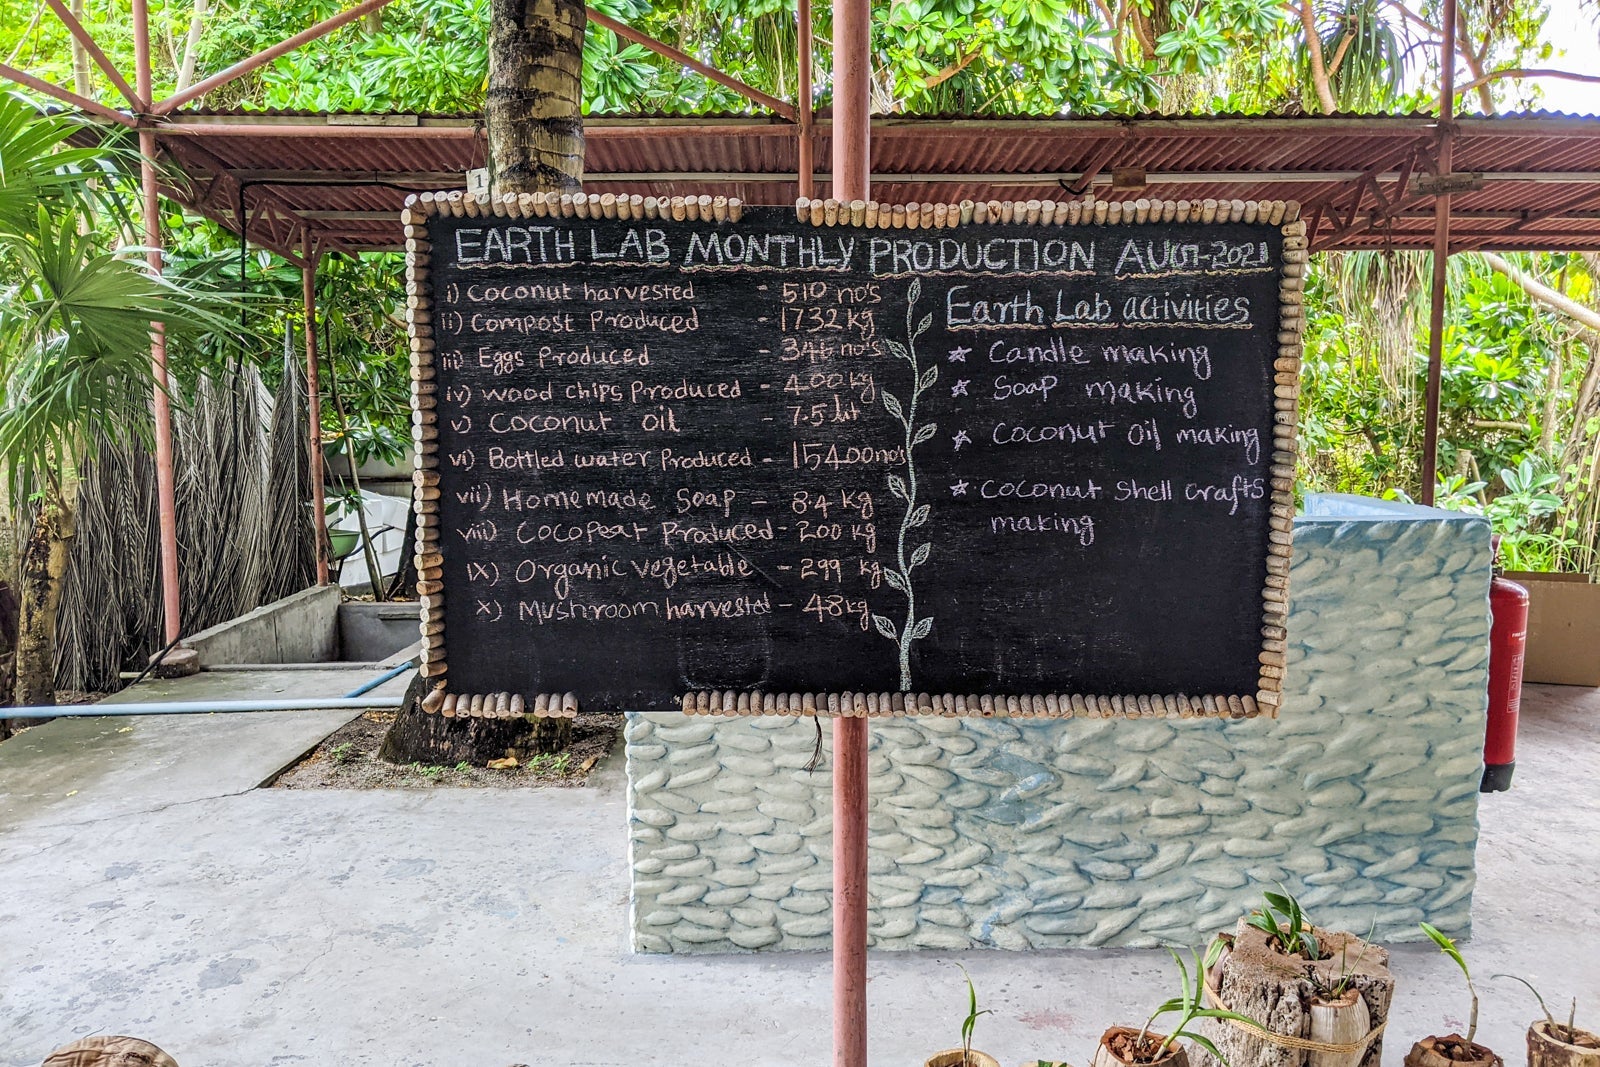 EARTH LAB MONTHLY PRODUCTION AUG-2021
i) Coconut harvested - 510 no's
ii) Compost Produced - 1732 kg
iii) Eggs Produced - 346 no's
iv) Wood chips Produced - 400 kg
v) Coconut oil - 7.5 lit
vi) Bottled water Produced - 15400 no's
vii) Homemade Soap - 8.4 kg
viii) Cocopeat Produced - 200 kg
ix) Organic vegetable - 299 kg
x) Mushroom harvested - 48 kg
Earth Lab activities
☆ Candle making
☆ Soap making
☆ Coconut Oil making
☆ Coconut Shell crafts
making
1